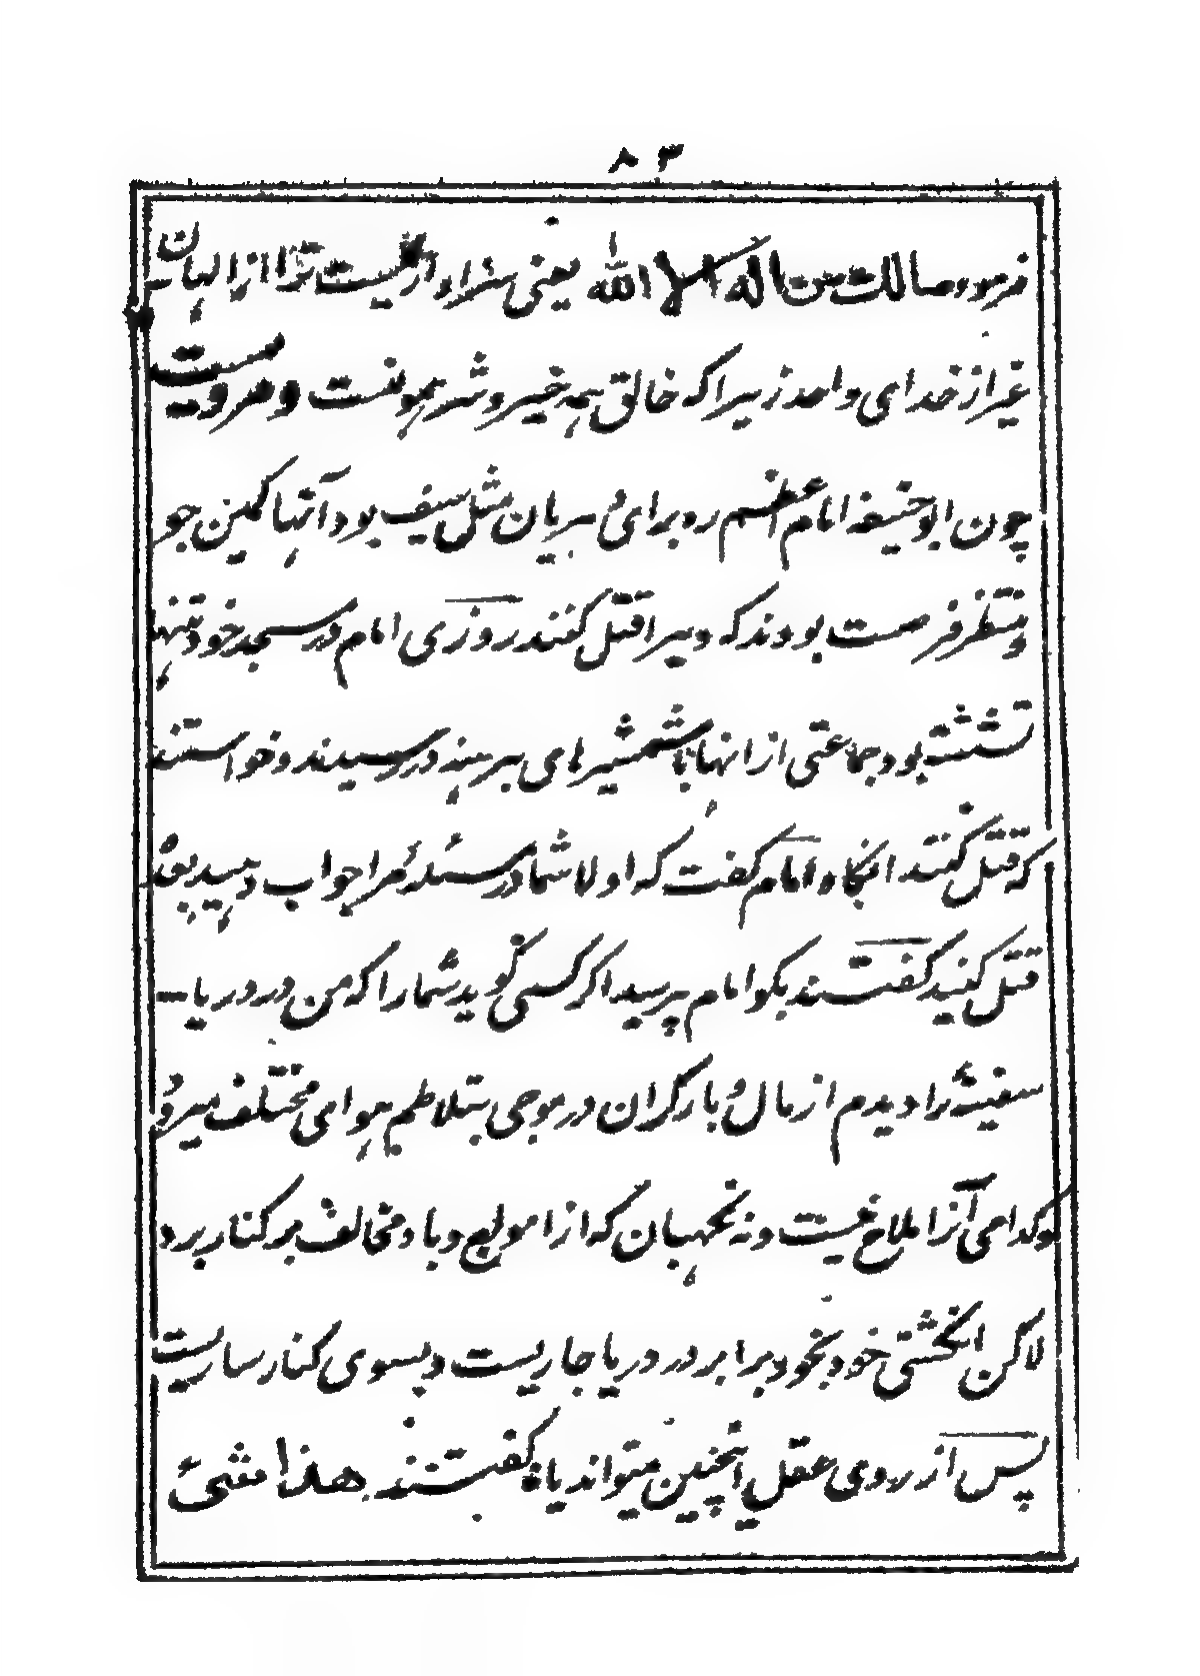 ۸۳
فرمود و مالک من اله الا الله یعنی سزاوار نیست ترا از الهان
غیر از خدای واحد زیرا که خالق همه خیر و شر همونست و مرویست
چون ابو حنیفه امام اعظم ره برای دهریان مثل سیف بود آنها کمین جو
و منتظر فرصت بودند که ویرا قتل کنند روزی امام در مسجد خود تنها
نشسته بود جماعتی از انها با شمشیرهای برهنه در رسیدند و خواستند
که قتل کنند انگاه امام گفت که اولا شما در مسئله مرا جواب دهید بعده
قتل کنید گفتند بگو امام پرسید اگر کسی گوید شمارا که من در دریا
سفینه را دیدم از مال و بار گران در موجی بتلاطم هوای مختلف میرود
و کدامی آنرا ملاح نیست و نه نگهبان که از امواج و باد مخالف بر کنار برد
لاکن انکشتی خود بخود برابر در دریا جاریست و بسوی کنار ساریست
پس از روی عقل اینچنین میتواند یا نه گفتند هذا شیئ